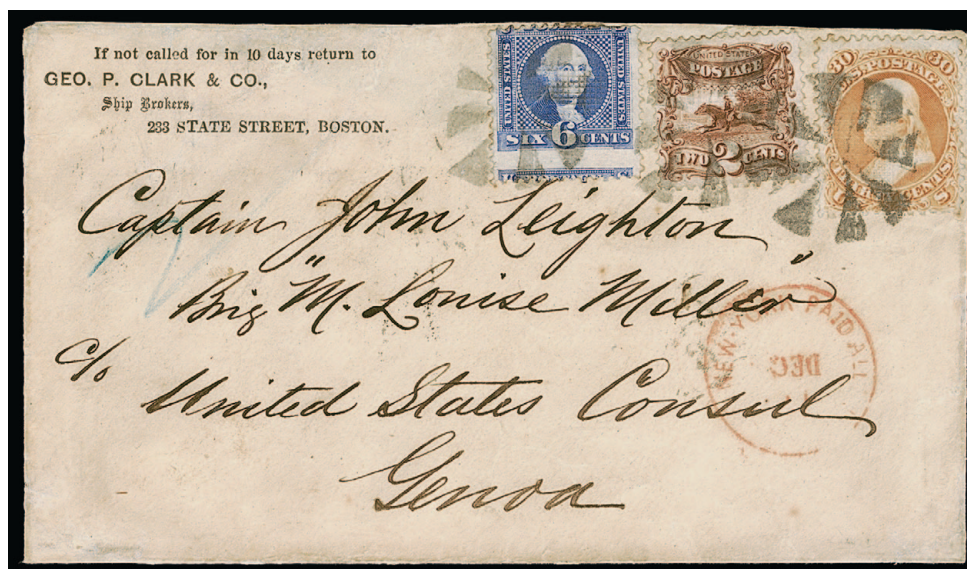 If not called for in 10 days return to
GEO. P. CLARK & CO.,
Ship Brokers,
233 STATE STREET, BOSTON.
UNITED STATES
UNITED STATES
SIX 6 CENTS
UNITED STATES
POSTAGE
TWO 2 CENTS
30 30
U.S. POSTAGE
CENTS
Captain John Leighton
Brig "M. Louise Miller"
c/o
United States Consul
Genoa
NEW-YORK PAID ALL
DEC